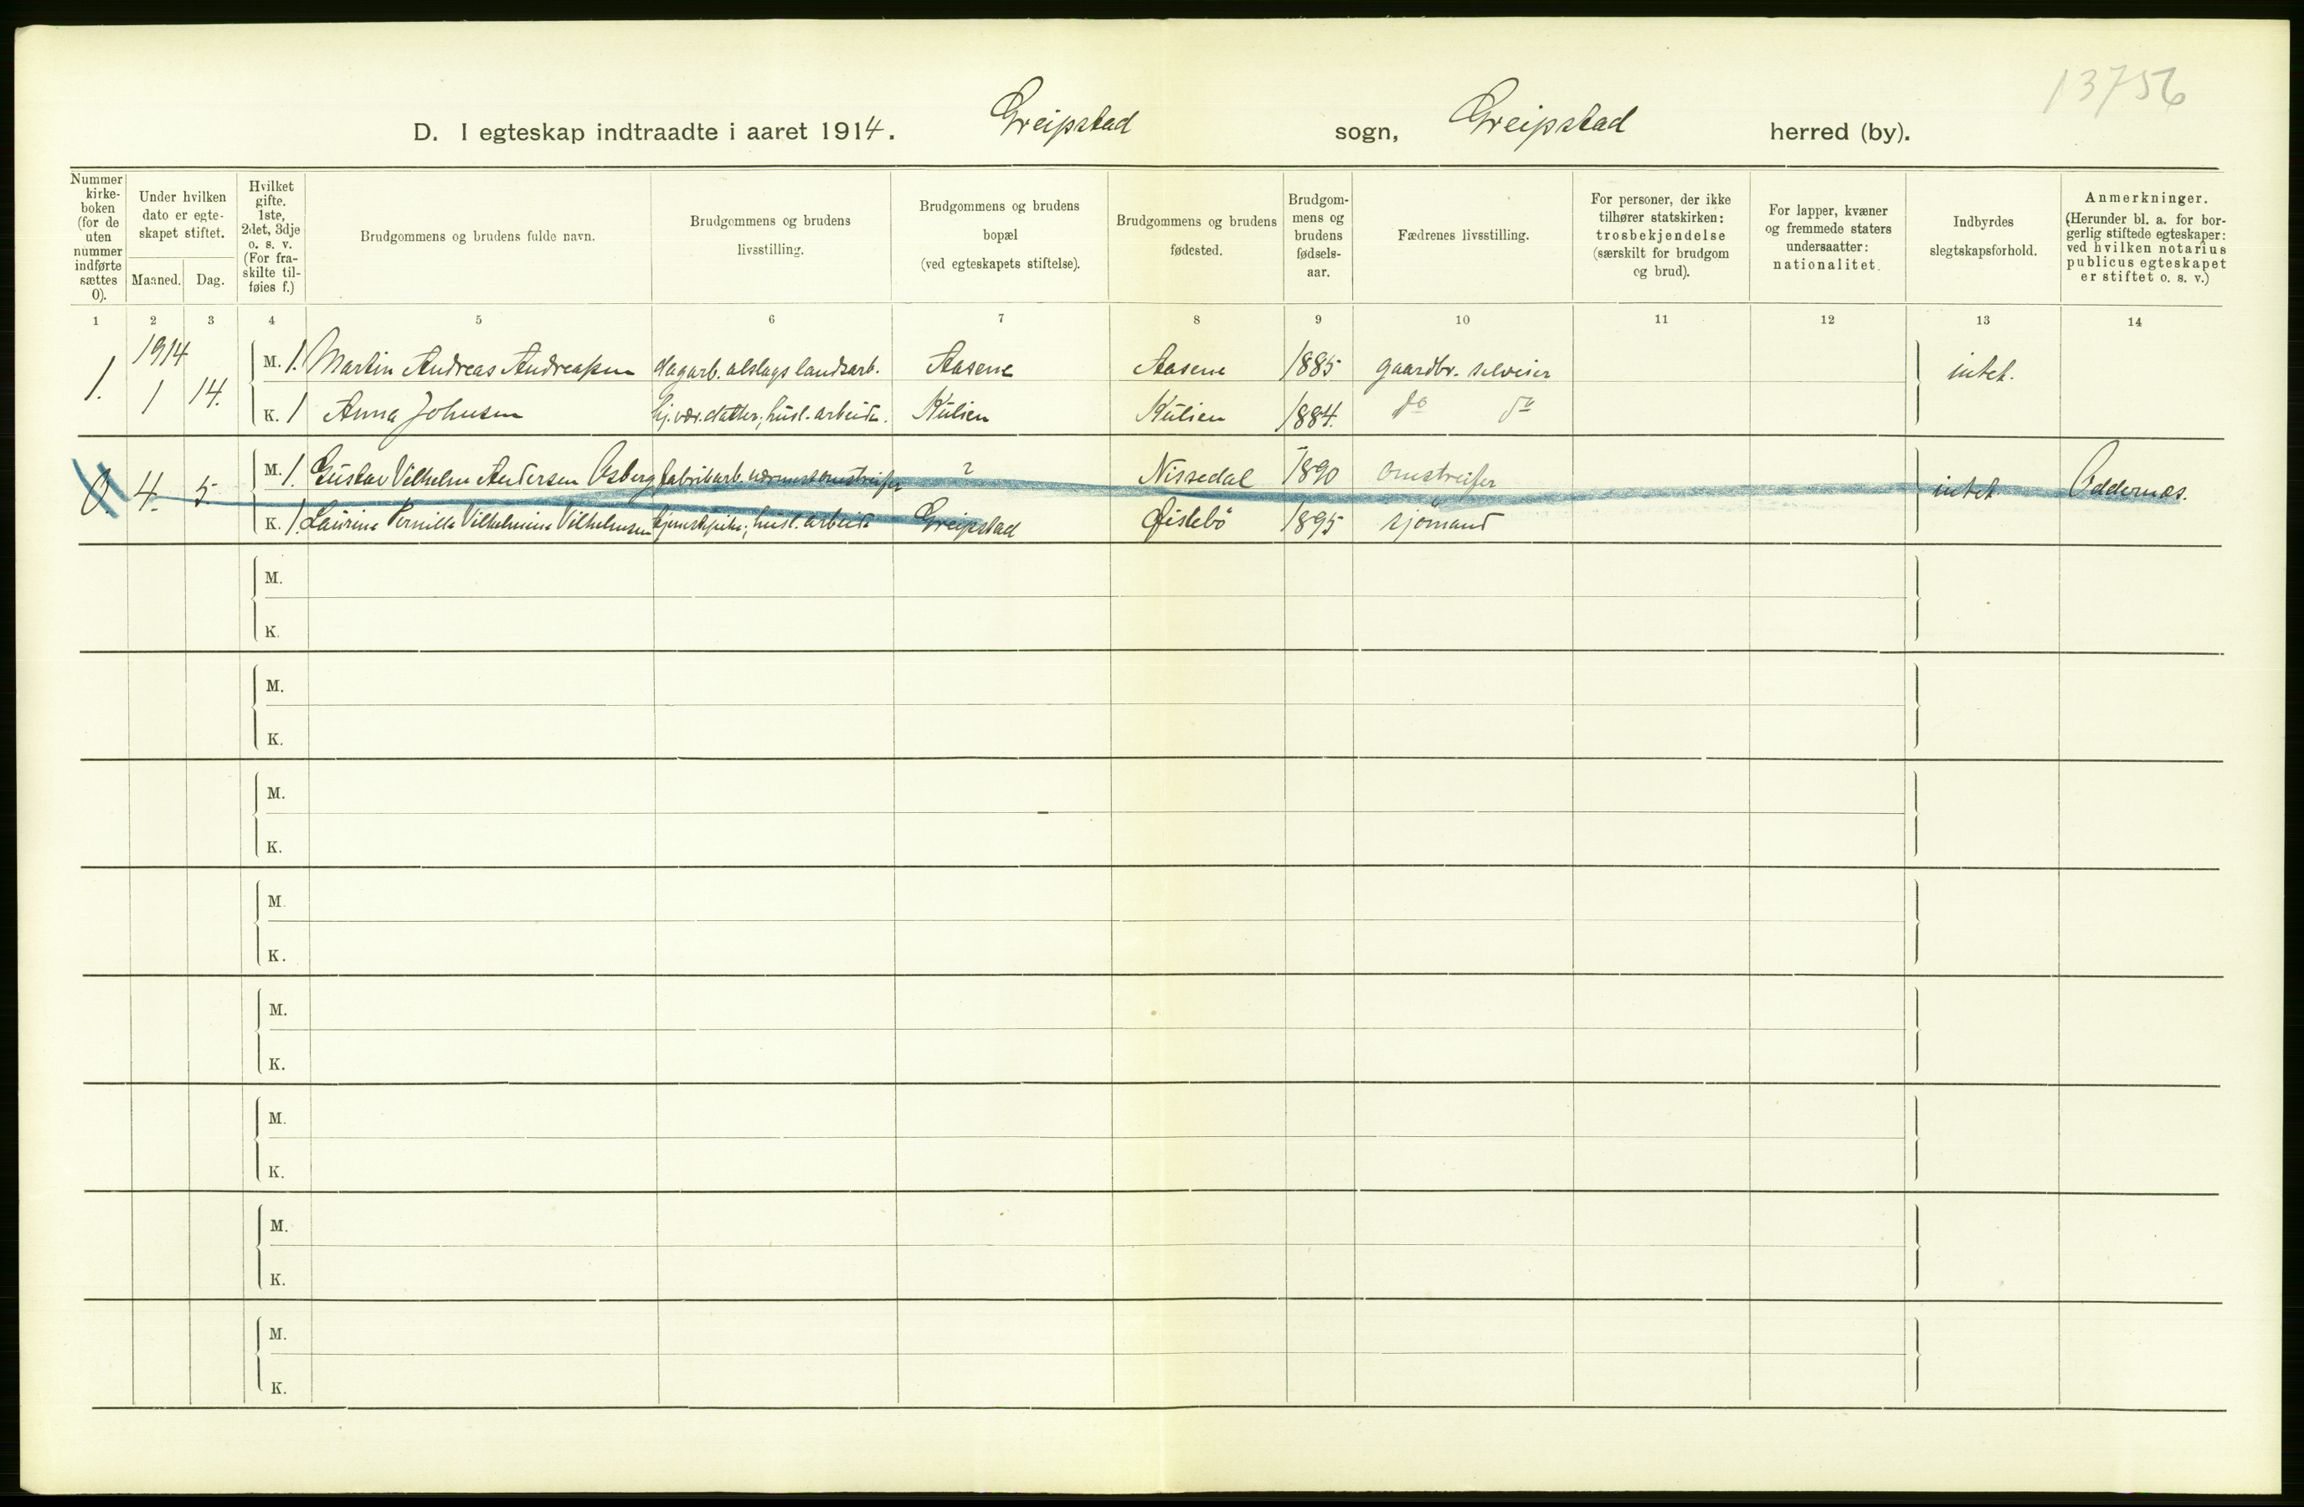 13756
D. I egteskap indtraadte i aaret 1914. Greipstad sogn, Greipstad herred (by).
Nummer kirke-boken (for de uten nummer indførte sættes 0).
Under hvilken dato er egte-skapet stiftet.
Maaned. Dag.
Hvilket gifte. 1ste, 2det, 3dje o. s. v. (For fra-skilte til-føies f.)
Brudgommens og brudens fulde navn.
Brudgommens og brudens livsstilling.
Brudgommens og brudens bopæl (ved egteskapets stiftelse).
Brudgommens og brudens fødested.
Brudgom-mens og brudens fødsels-aar.
Fædrenes livsstilling.
For personer, der ikke tilhører statskirken: trosbekjendelse (særskilt for brudgom og brud).
For lapper, kvæner og fremmede staters undersaatter: nationalitet.
Indbyrdes slegtskapsforhold.
Anmerkninger. (Herunder bl. a. for bor-gerlig stiftede egteskaper: ved hvilken notarius publicus egteskapet er stiftet o. s. v.)
1 2 3 4 5 6 7 8 9 10 11 12 13 14
1914
1. 1 14. M. 1. Martin Andreas Andreassen dagarb. alslags landsarb. Aasene Aasene 1885 gaardbr. selveier intet.
K. 1 Anna Johnsen hj.vær. datter; husl. arbeide. Kulien Kulien 1884. do do
0. 4. 5. M. 1. Gustav Vilhelm Andersen Osberg fabrikarb. nærmest omstreifer ? Nissedal 1890 omstreifer intet Oddernæs.
K. 1. Laurine Pernille Vilhelmine Vilhelmsen tjenestepike; husl. arbeide Greipstad Øislebö 1895 sjömand
M.
K.
M.
K.
M.
K.
M.
K.
M.
K.
M.
K.
M.
K.
M.
K.